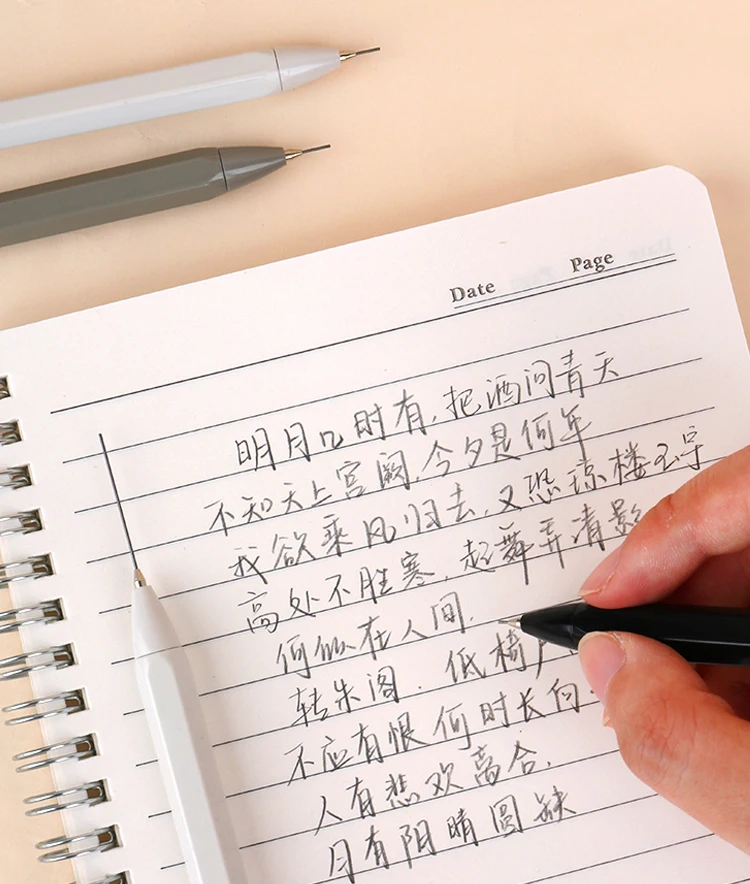 Date Page
明月几时有,把酒问青天
不知天上宫阙,今夕是何年
我欲乘风归去,又恐琼楼玉宇
高处不胜寒,起舞弄清影
何似在人间.
转朱阁.低椅户
不应有恨何时长向
人有悲欢离合,
月有阴晴圆缺